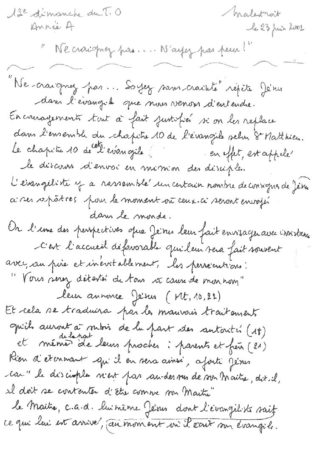 12e dimanche du T.O
Année A
Malestroit
le 23 juin 2002
"Ne craignez pas.... N'ayez pas peur!"
"Ne craignez pas... Soyez sans crainte" répète Jésus
dans l'évangile que nous venons d'entendre.
Encouragements tout à fait justifiés si on les replace
dans l'ensemble du chapitre 10 de l'évangile selon St Matthieu.
Le chapitre 10 de cet évangile en effet, est appelé
le discours d'envoi en mission des disciples.
L'évangéliste y a rassemblé un certain nombre de consignes de Jésus
à ses apôtres pour le moment où ceux-ci seront envoyés
dans le monde.
Or l'une des perspectives que Jésus leur fait envisager avec insistance
c'est l'accueil défavorable qui leur sera fait souvent
avec, au pire et inévitablement, les persécutions:
"Vous serez détestés de tous à cause de mon nom"
leur annonce Jésus (Mt. 10,22)
Et cela se traduira par les mauvais traitements
qu'ils auront à subir de la part des autorités (18)
et même de la part de leurs proches: parents et frères (21)
Rien d'étonnant qu'il en sera ainsi, ajoute Jésus
car "le disciple n'est pas au-dessus de son Maître, dit-il,
il doit se contenter d'être comme son Maître"
le Maître, c.a.d. lui-même Jésus dont l'évangéliste sait
ce qui lui est arrivé, au moment où il écrit son évangile.